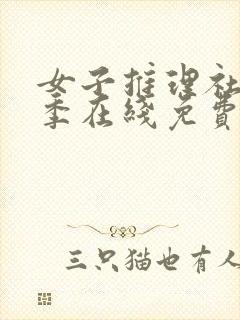 女子推理社
季在綫免費
三只猫也有人